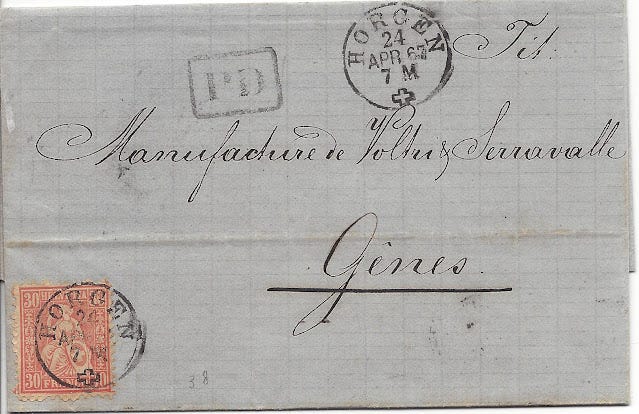 HORGEN
24
APR 67
7 M
Tit.
PD
Manufacture de Voltri & Serravalle
Gênes.
30 30
HORGEN
24
AP
7 M
30 FRANCO
3 8